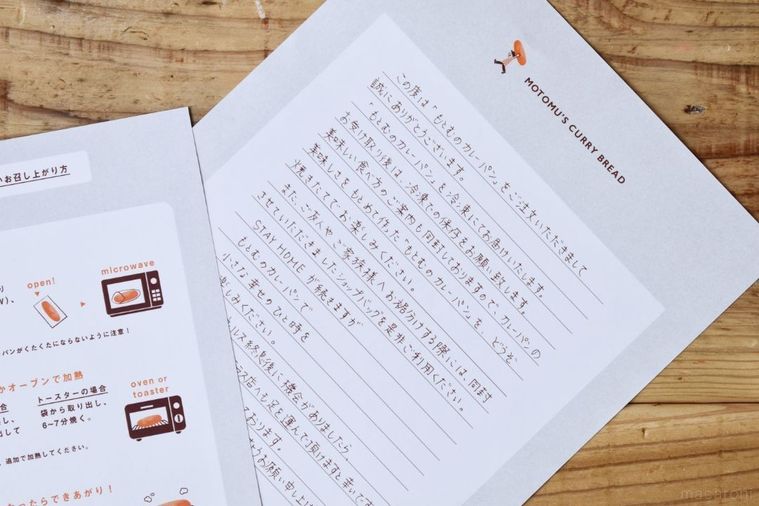 MOTOMU'S CURRY BREAD
この度は「もとむのカレーパン」をご注文いただきまして
誠にありがとうございます。
「もとむのカレーパン」を冷凍にてお届けいたします。
お受け取り後は、冷凍での保存をお願い致します。
美味しい食べ方のご案内も同封しておりますので、カレーパンの
美味しさをもとめて作った「もとむのカレーパン」を、どうぞ
焼きたてでお楽しみください。
またご友人やご家族様へお裾分けする際には、同封
させていただきましたショップバッグを是非ご利用ください。
STAY HOME が続きますが
もとむのカレーパンで
小さな幸せのひと時を
しみください。
ルス終息後に機会がありましたら
店にも足を運んで頂けますと幸いです
おります。
お願い申し上げ
お召し上がり方
open!
microwave
パンがくたくたにならないように注意！
オーブンで加熱
トースターの場合
袋から取り出し、
6〜7分焼く。
oven or
toaster
追加で加熱してください。
ったらできあがり！